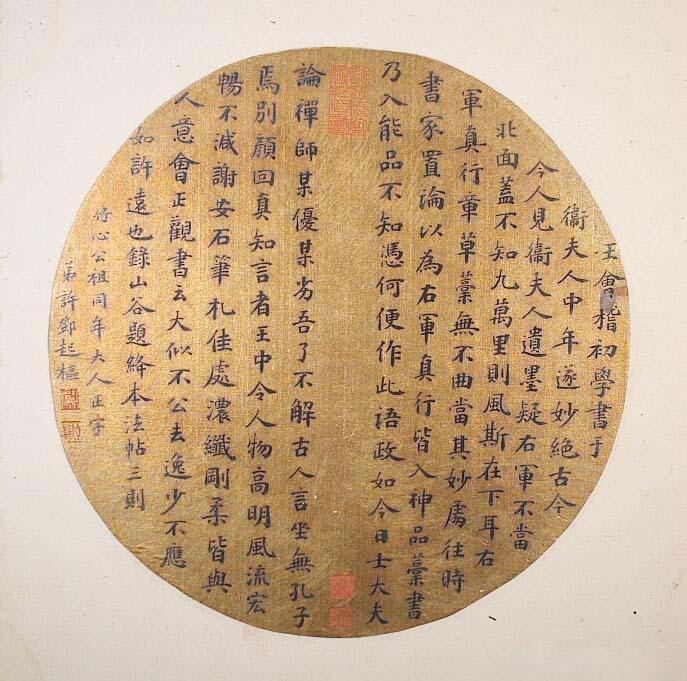 王會稽初學書于
衞夫人中年遂妙絕古今
今人見衞夫人遺墨疑右軍不當
北面蓋不知九萬里則風斯在下耳右
軍真行章草藁無不曲當其妙處往時
書家置論以為右軍真行皆入神品藁書
乃入能品不知憑何便作此語政如今日士大夫
論禪師某優某劣吾了不解古人言坐無孔子
焉別顏回真知言者王中令人物高明風流宏
暢不減謝安石筆札佳處濃纖剛柔皆與
人意會正觀書云大似不公去逸少不應
如許遠也錄山谷題絳本法帖三則
心公祖同年大人正字
弟許鄧起樞